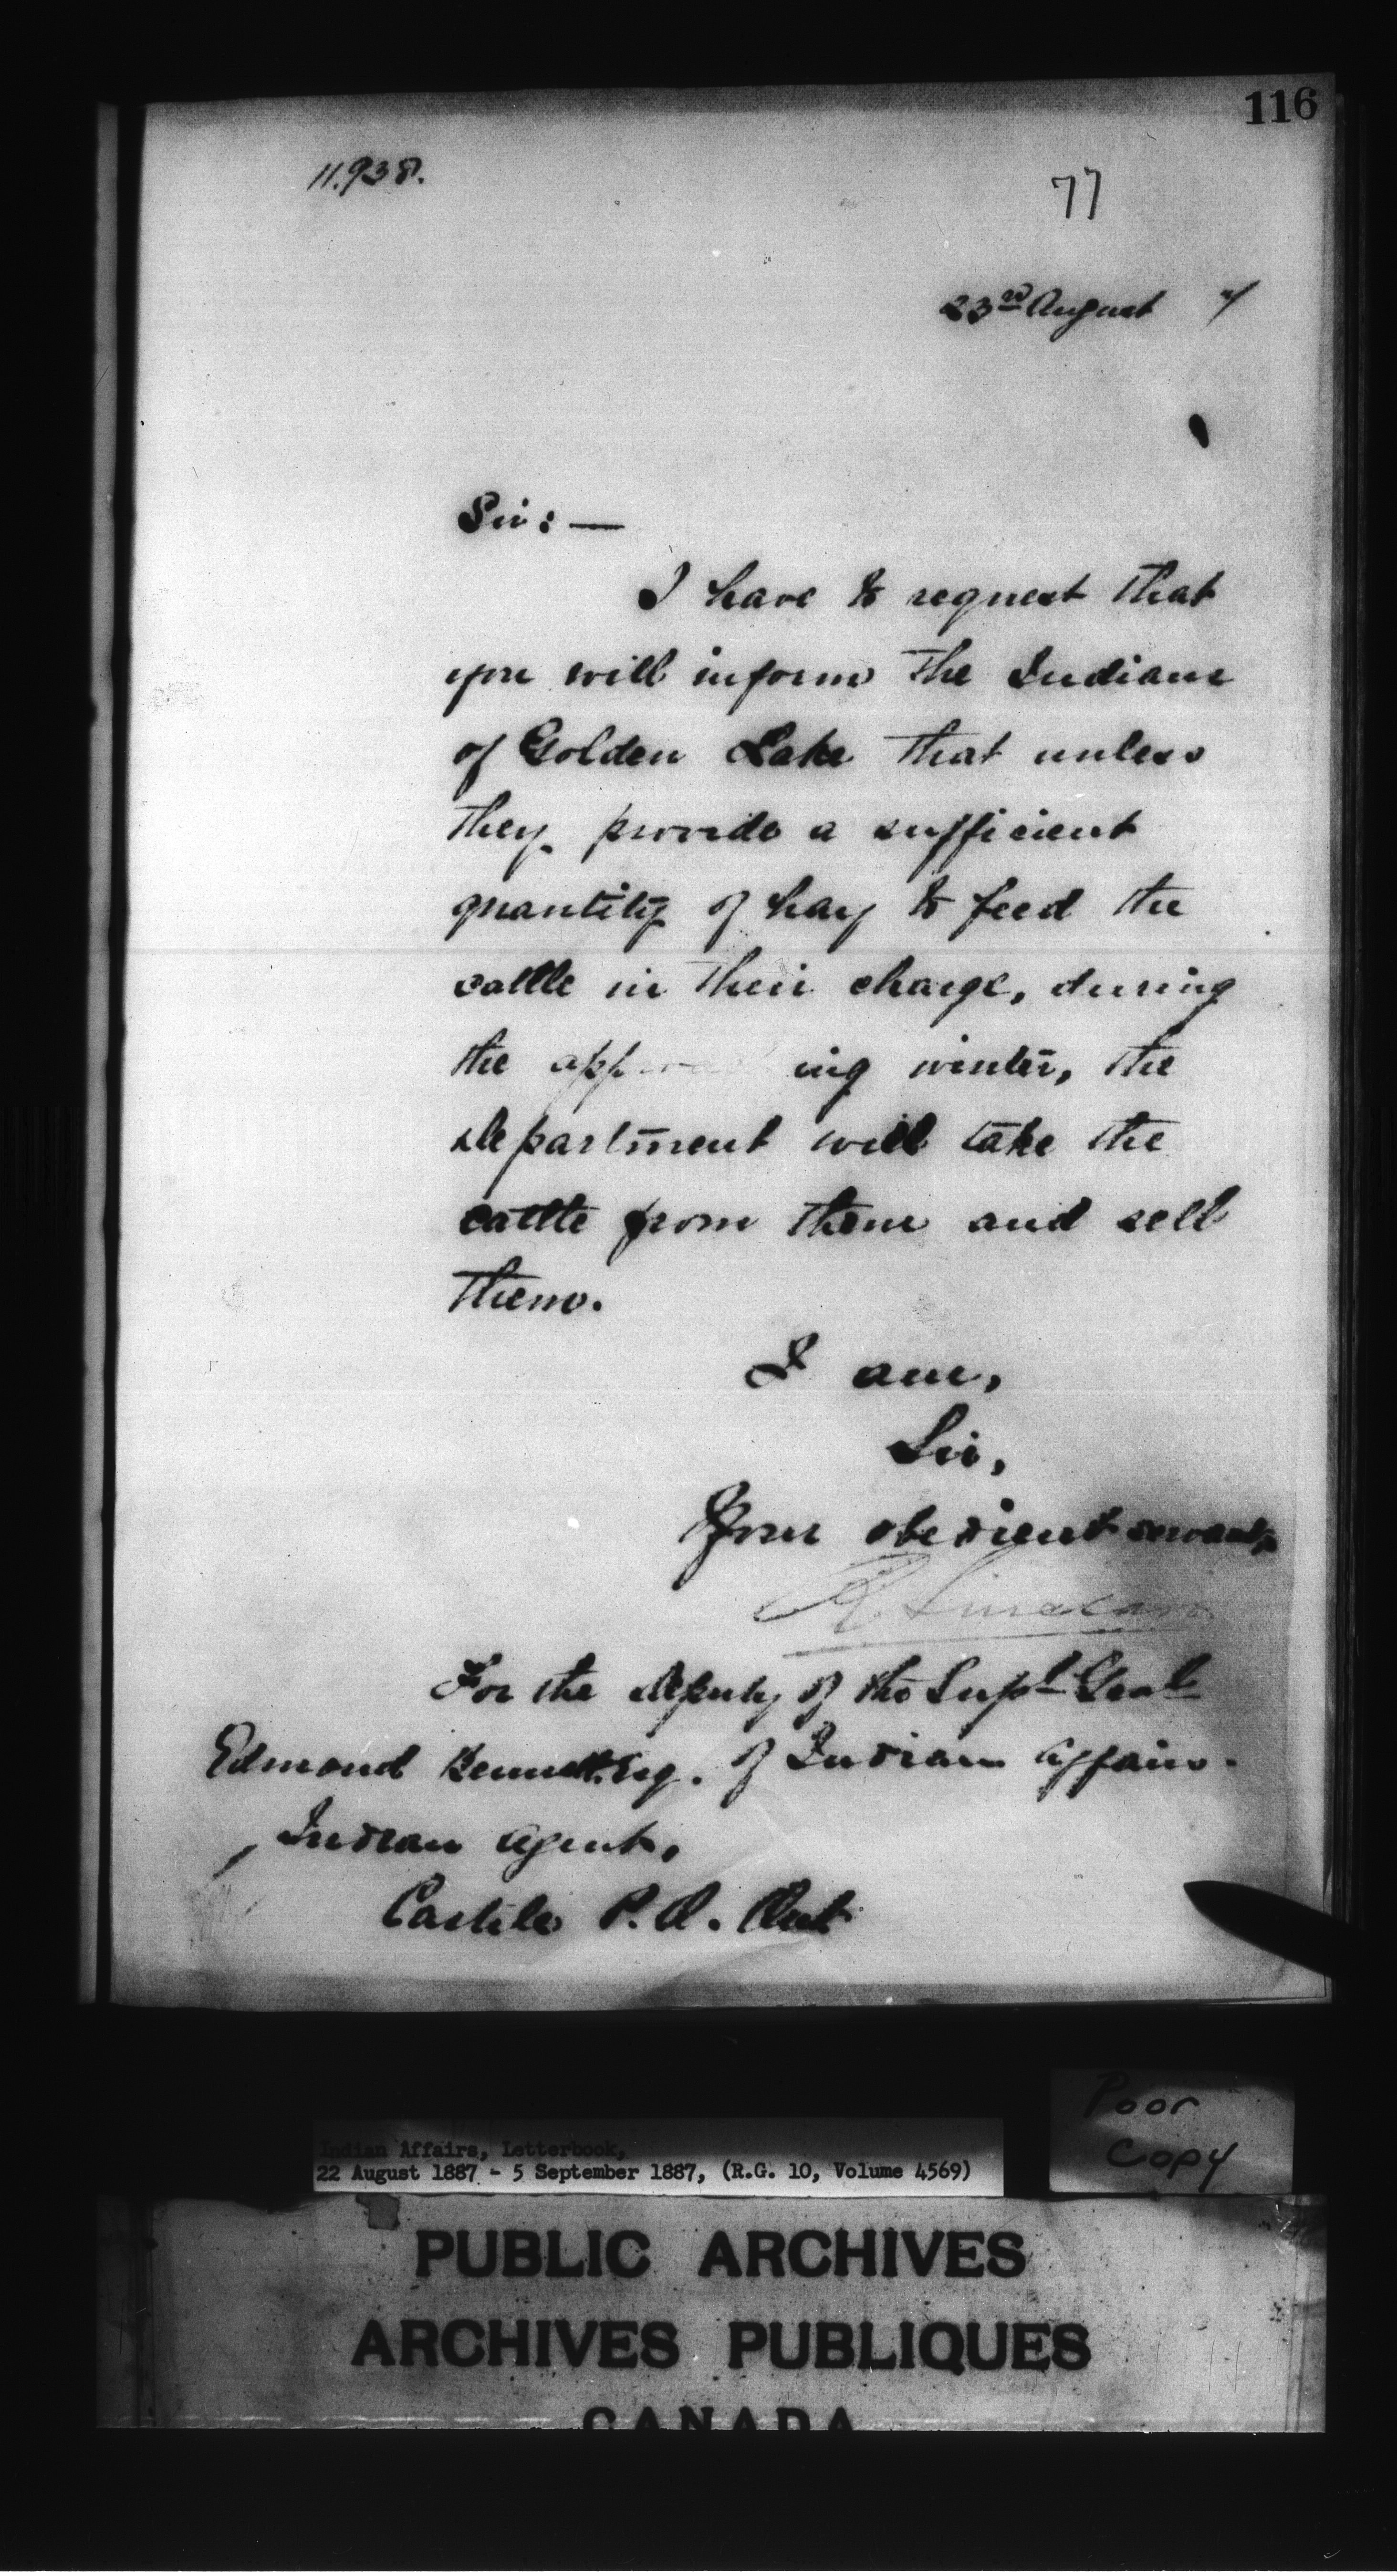 116
11.938.
77
23rd August 7
Sir:—
I have to request that
you will inform the Indians
of Golden Lake that unless
they provide a sufficient
quantity of hay to feed the
cattle in their charge, during
the approaching winter, the
department will take the
cattle from them and sell
them.
I am,
Sir,
Your obedient servant,
R. Sinclair
For the deputy of the Supt Genl
Edmond Bennett Esq. of Indian Affairs.
Indian Agent,
Castile P.O. Ont
Poor
Copy
Indian Affairs, Letterbook,
22 August 1887 - 5 September 1887, (R.G. 10, Volume 4569)
PUBLIC ARCHIVES
ARCHIVES PUBLIQUES
CANADA